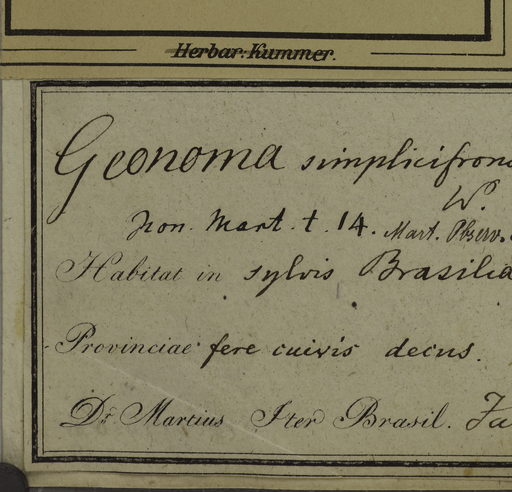 Herbar. Kummer.
Geonoma simplicifron
W.
Icon. Mart. t. 14. Mart. Observ.
Habitat in sylvis Brasilia
Provinciae fere cuivis decus.
Dr Martius Iter Brasil. Fa